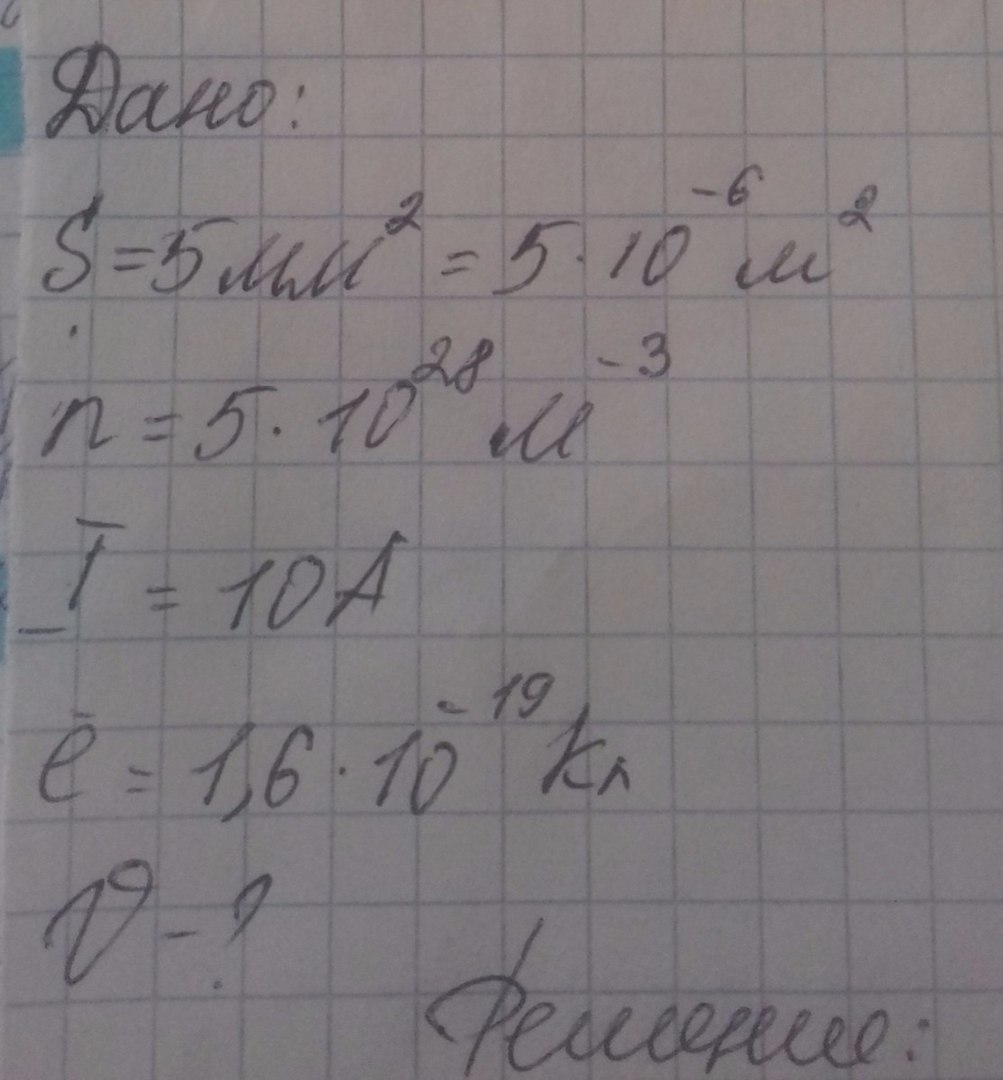 Дано:
S = 5 мм² = 5 · 10⁻⁶ м²
n = 5 · 10²⁸ м⁻³
I = 10 А
e̅ = 1,6 · 10⁻¹⁹ Кл
v - ?
Решение: